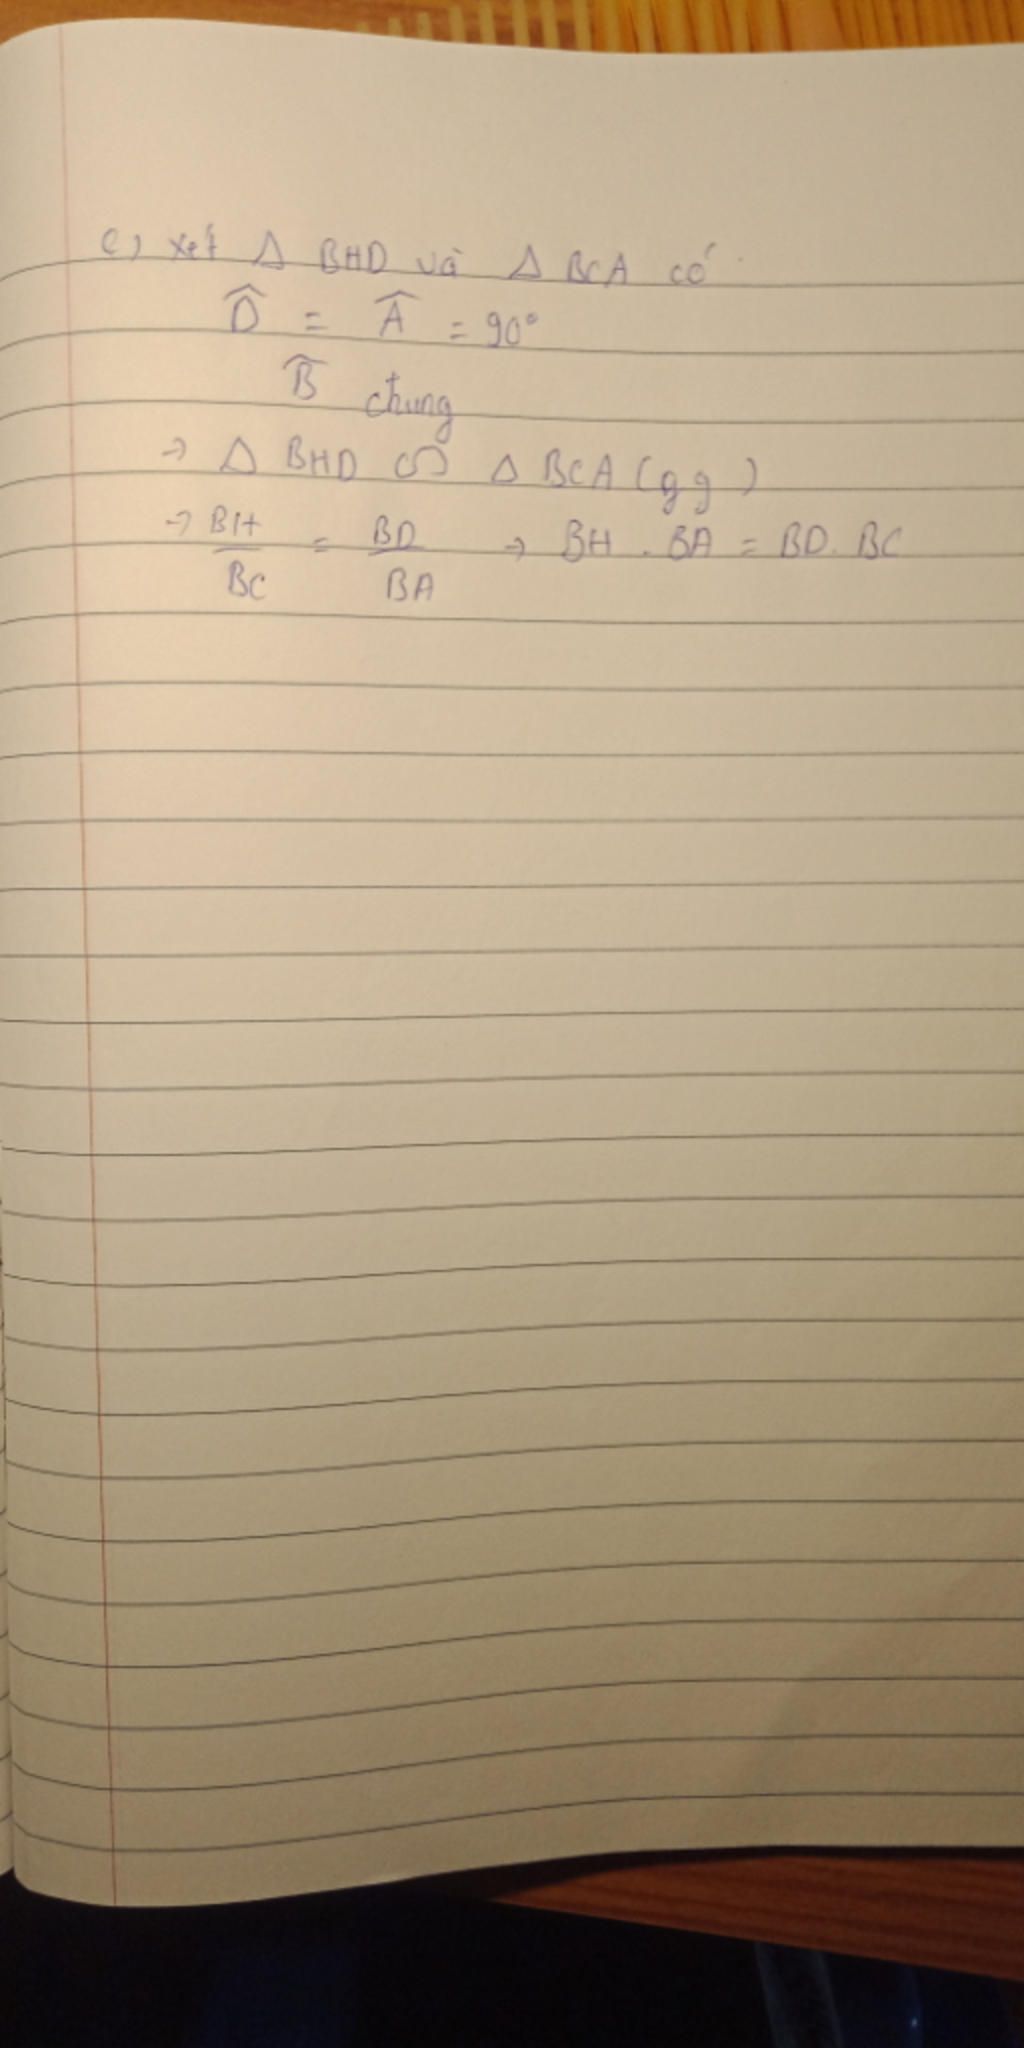 c) xét Δ BHD và Δ BCA có
D̂ = Â = 90°
B̂ chung
→ Δ BHD ∽ Δ BCA (gg)
→ BH/BC = BD/BA → BH . BA = BD. BC